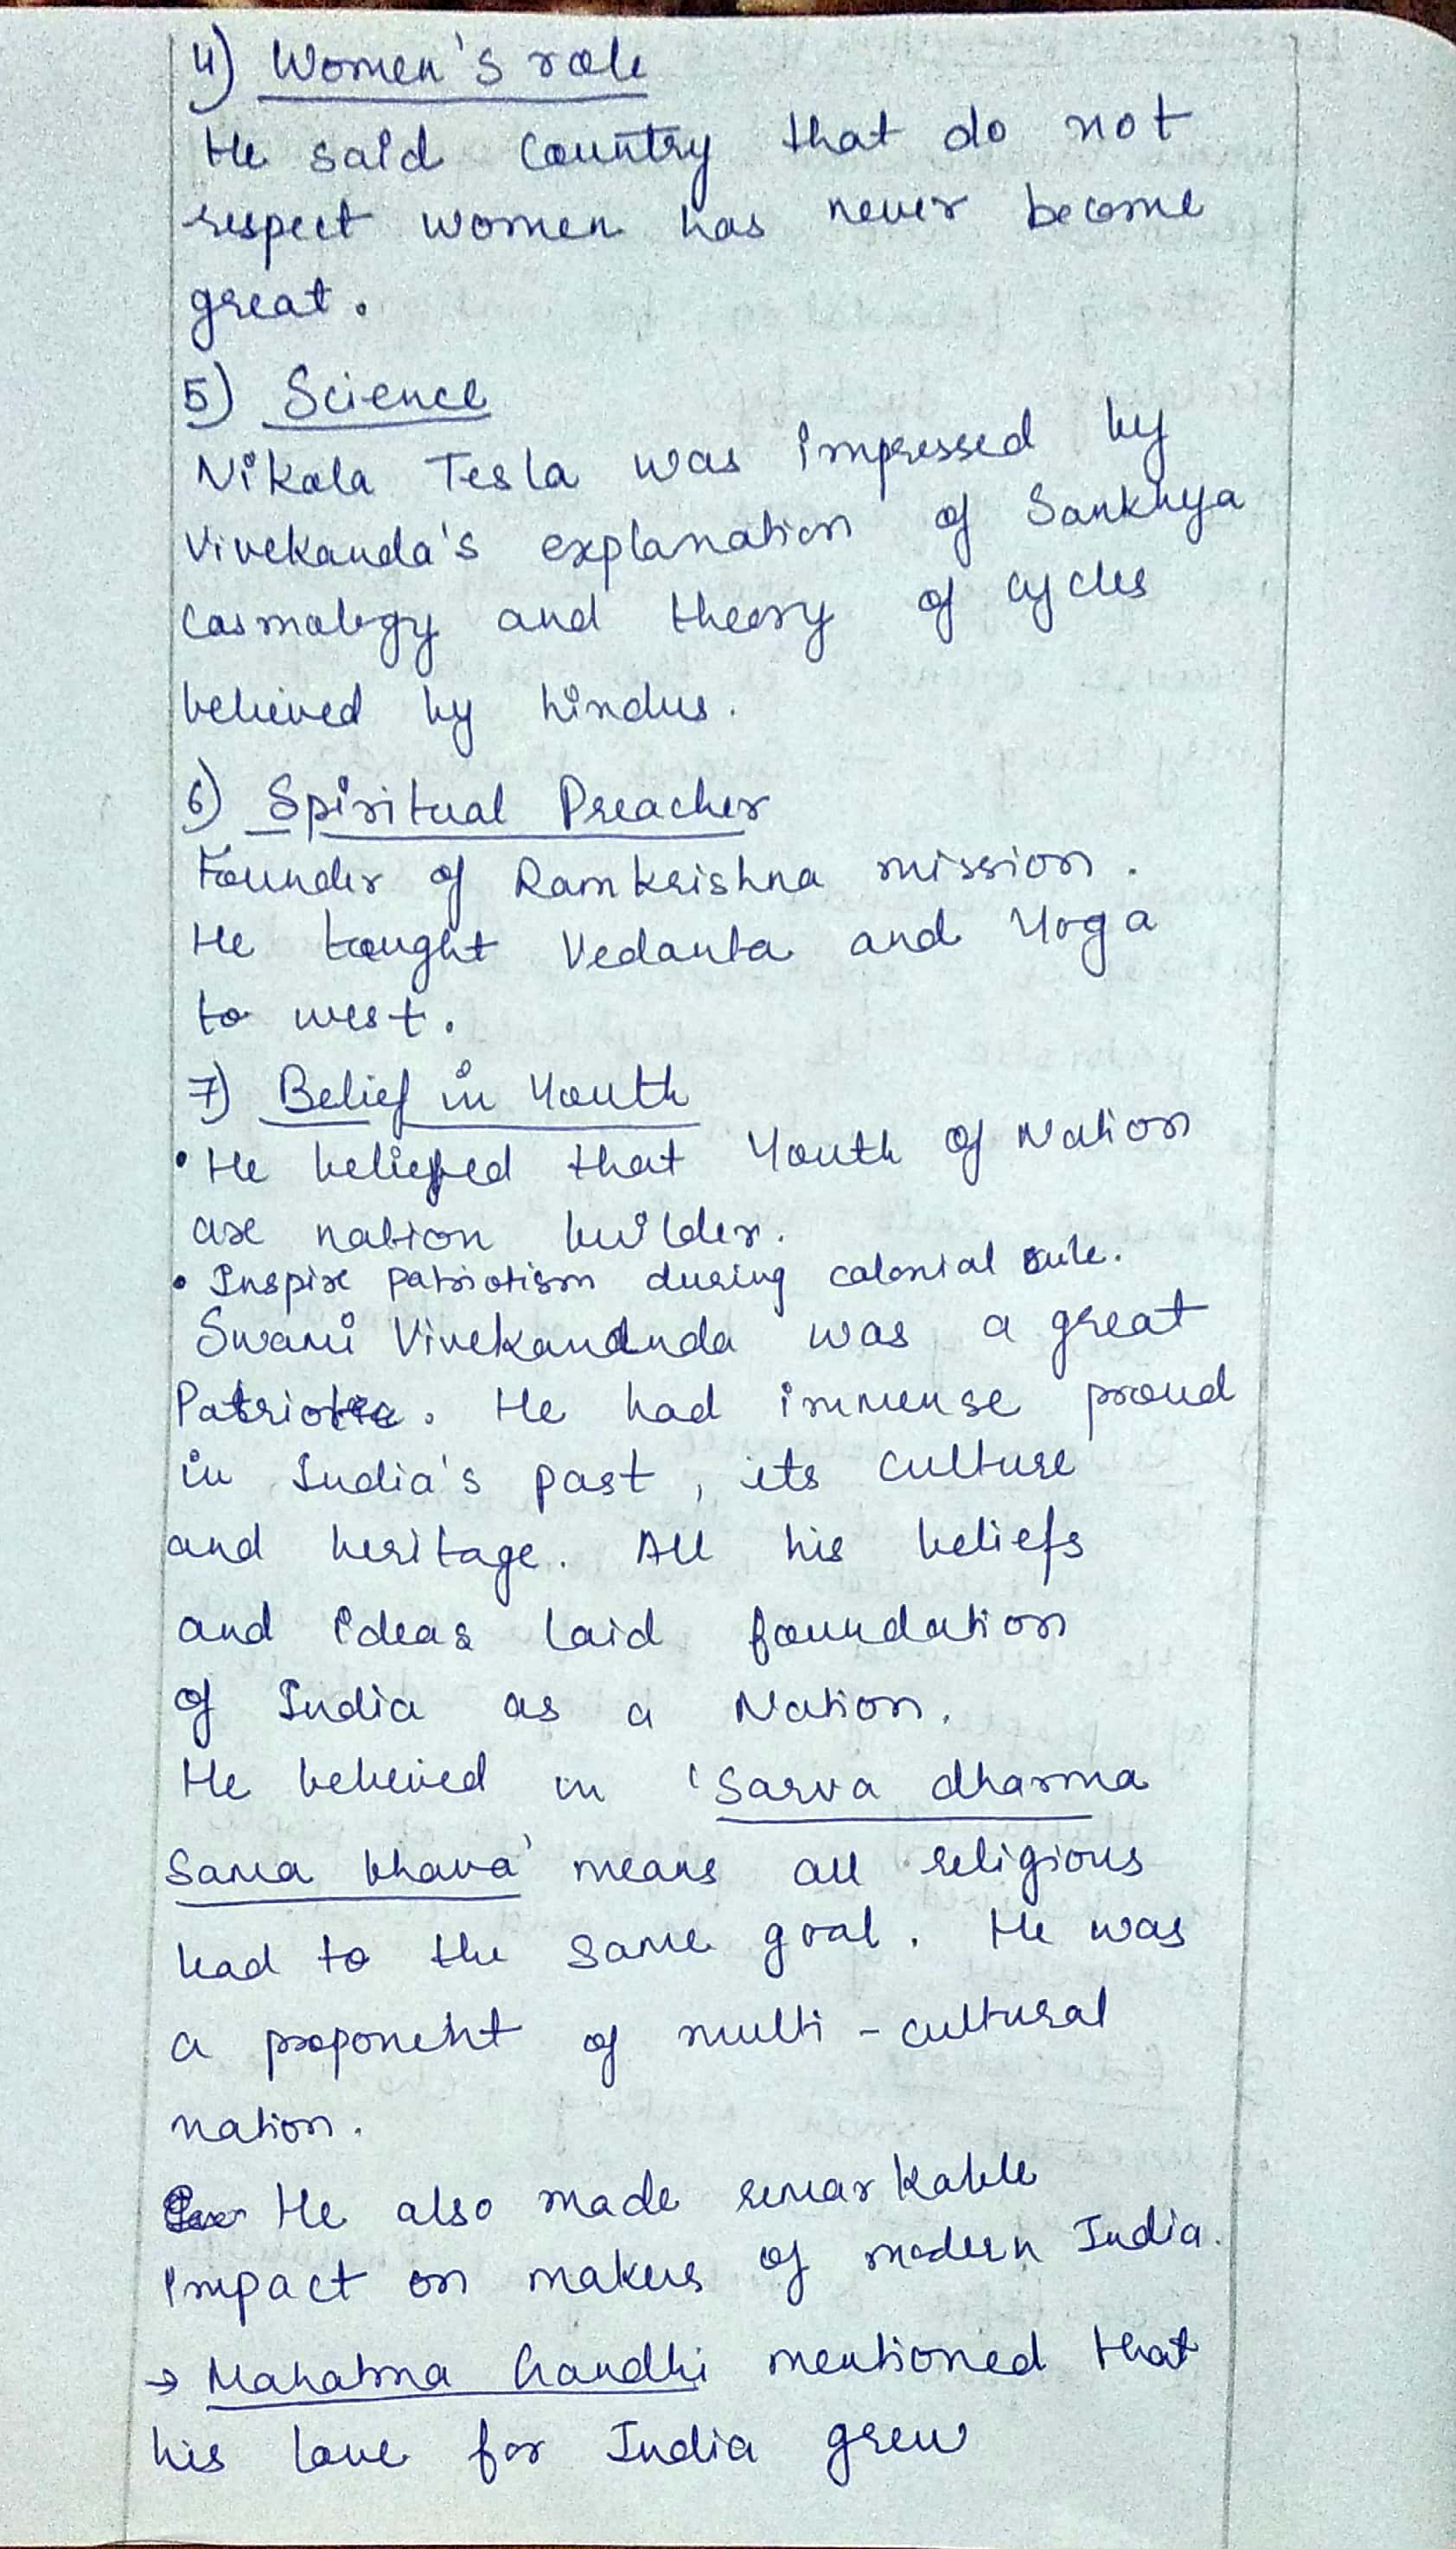 4) Women's role
He said Country that do not
respect women has never become
great.
5) Science
Nikola Tesla was impressed by
Vivekanda's explanation of Sankhya
Cosmology and theory of cycles
believed by hindus.
6) Spiritual Preacher
Founder of Ramkrishna mission.
He taught Vedanta and Yoga
to west.
7) Belief in Youth
• He believed that Youth of Nation
are nation builder.
• Inspire patriotism during colonial rule.
Swami Vivekananda was a great
Patriot. He had immense proud
in India's past, its culture
and heritage. All his beliefs
and ideas laid foundation
of India as a Nation.
He believed in 'Sarva dharma
Sama bhava' means all religious
lead to the same goal. He was
a proponent of multi-cultural
nation.
He also made remarkable
impact on makers of modern India.
→ Mahatma Gandhi mentioned that
his love for India grew